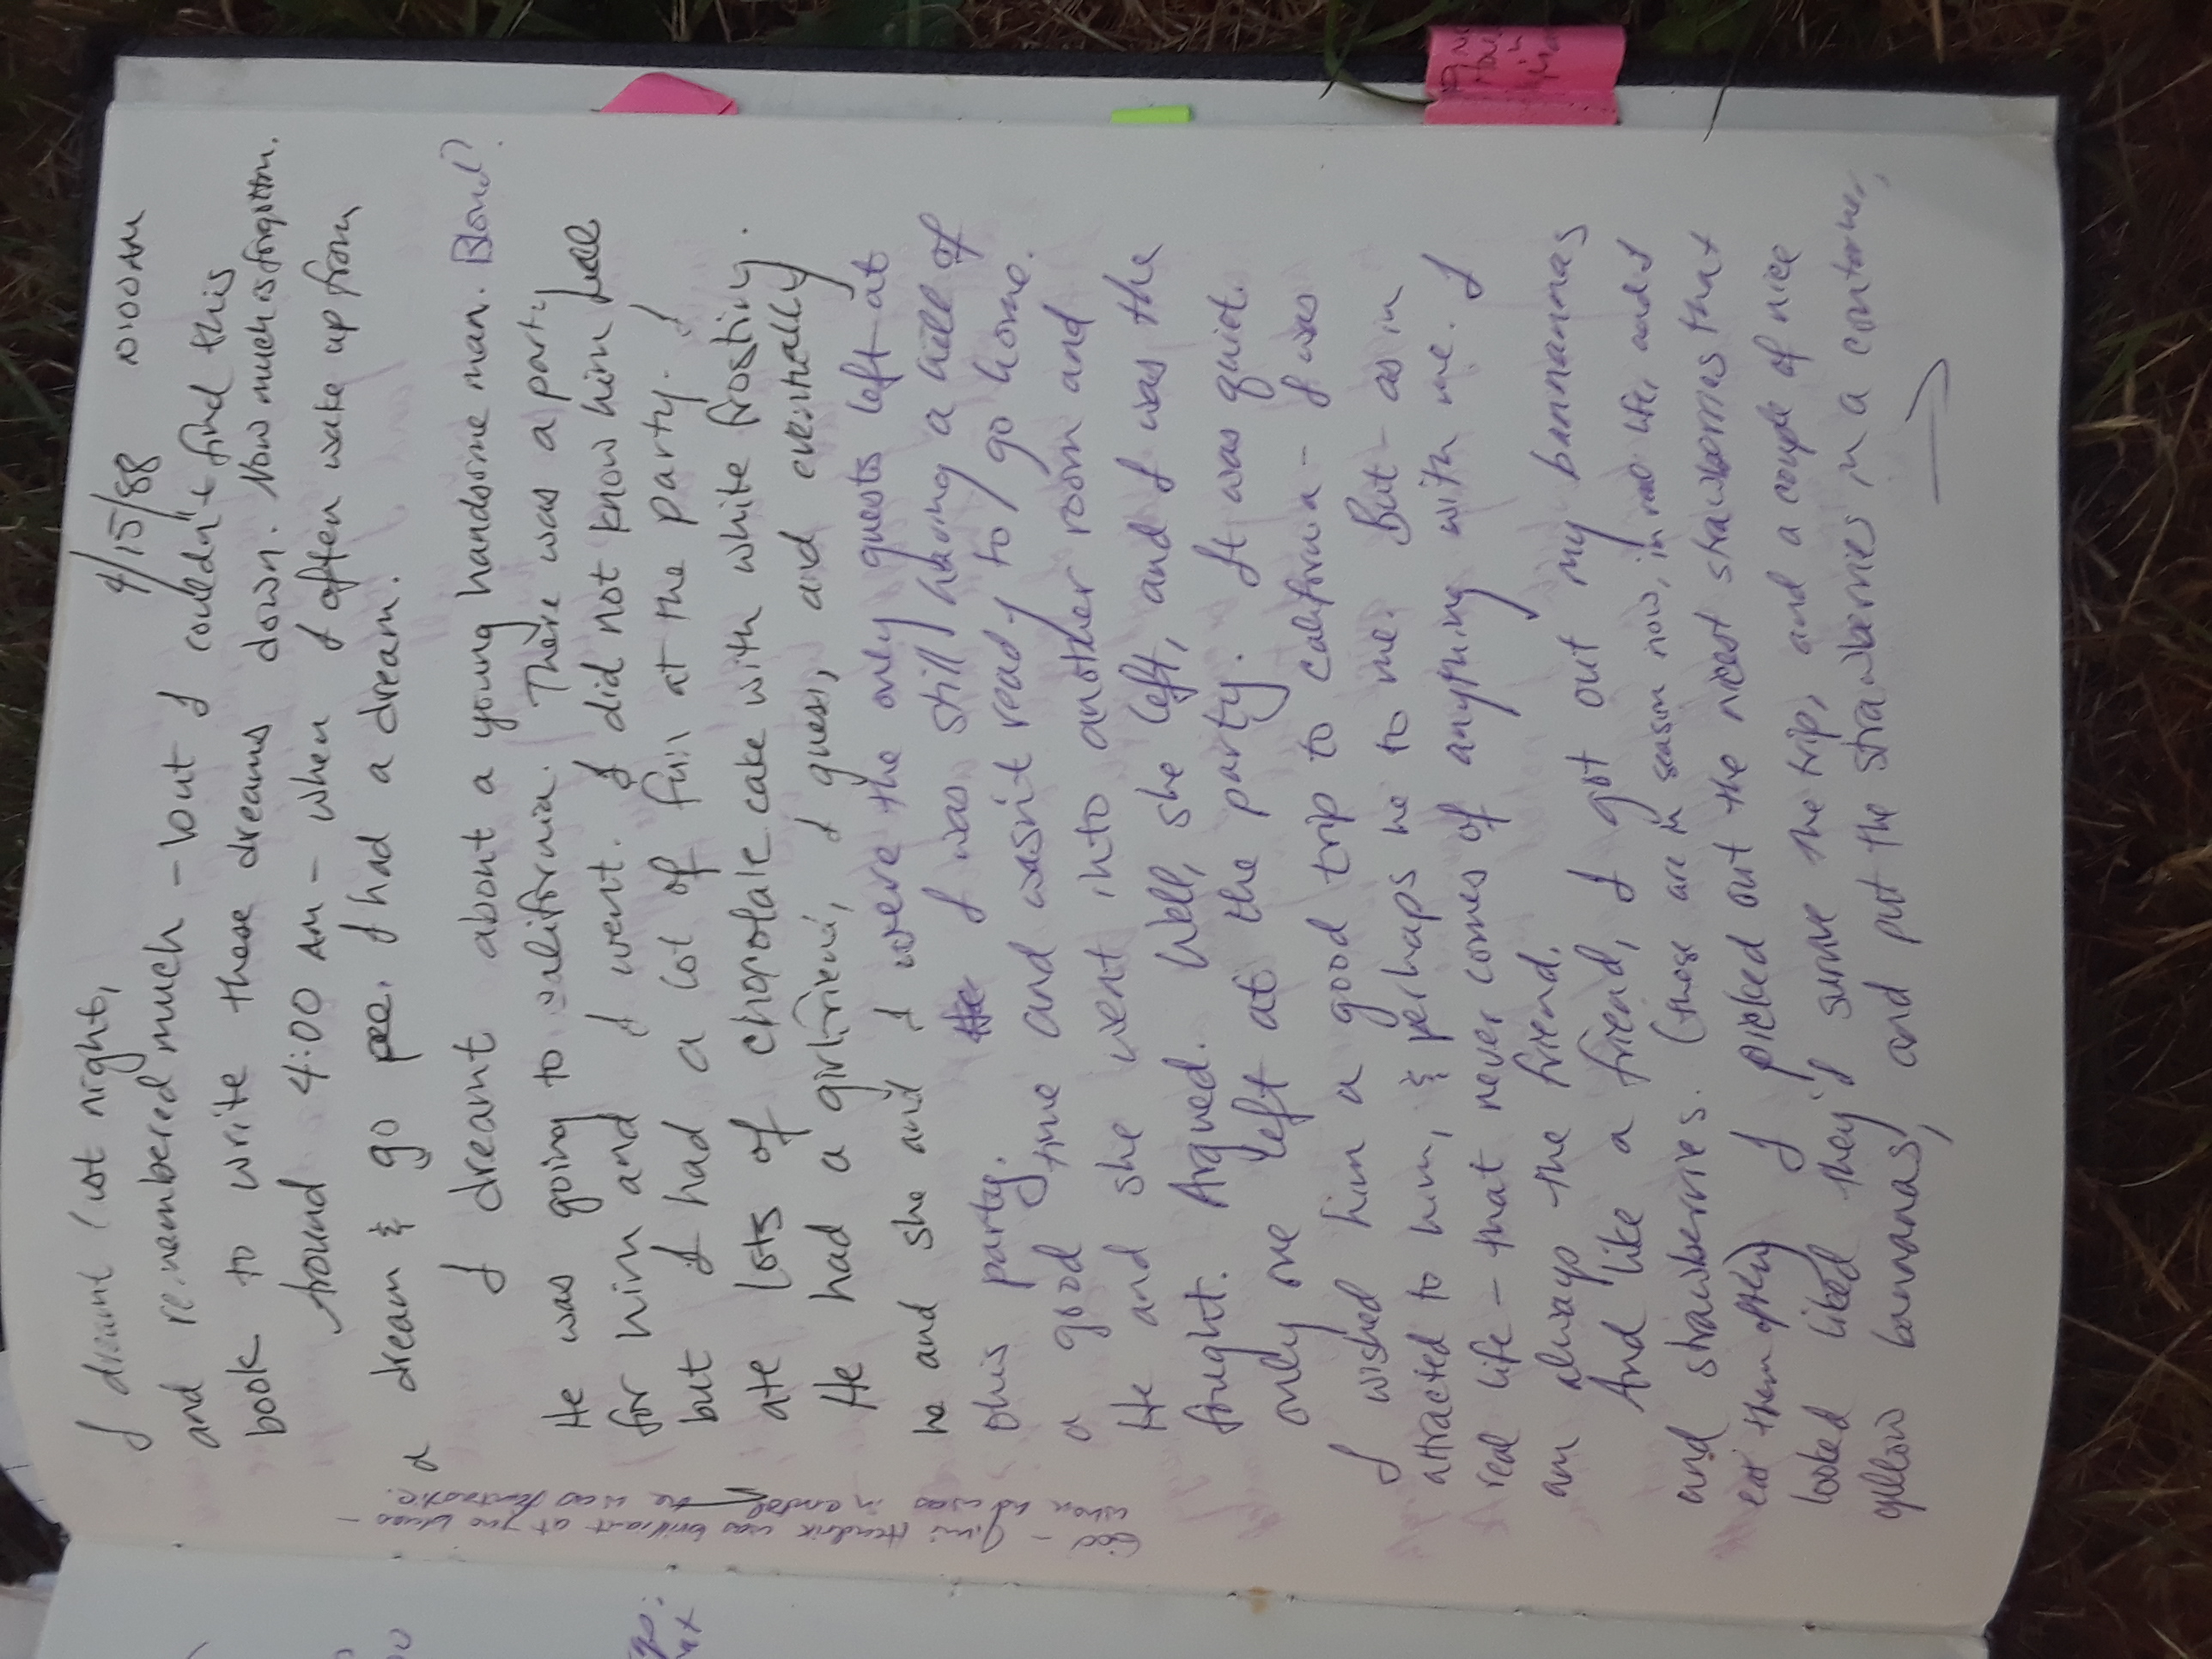 4/15/88 10:00 AM
I dreamt last night,
and remembered much - but I couldn't find this
book to write these dreams down. Now much is forgotten.
Around 4:00 AM - when I often wake up from
a dream & go pee. I had a dream.
I dreamt about a young handsome man. Blond?
He was going to california. There was a party
for him and I went. I did not know him well
but I had a lot of fun at the party. I
ate lots of chocolate cake with white frosting.
He had a girlfriend, I guess, and eventually
he and she and I were the only guests left at
this party. I was still having a hell of
a good time and wasn't ready to go home.
He and she went into another room and
fought. Argued. Well, she left, and I was the
only one left at the party. It was quiet.
I wished him a good trip to california - I was
attracted to him, & perhaps he to me. But - as in
real life - that never comes of anything with me. I
am always the friend.
And like a friend, I got out my bannannas
and strawberries. (these are in season now, in real life, and I
eat them often) I picked out the nicest strawberries that
looked liked they'd survive the trip, and a couple of nice
yellow bannanas, and put the strawberries in a container,
God - Jimi Hendrix was brilliant at the blues -
when he was in control he was fantastic.